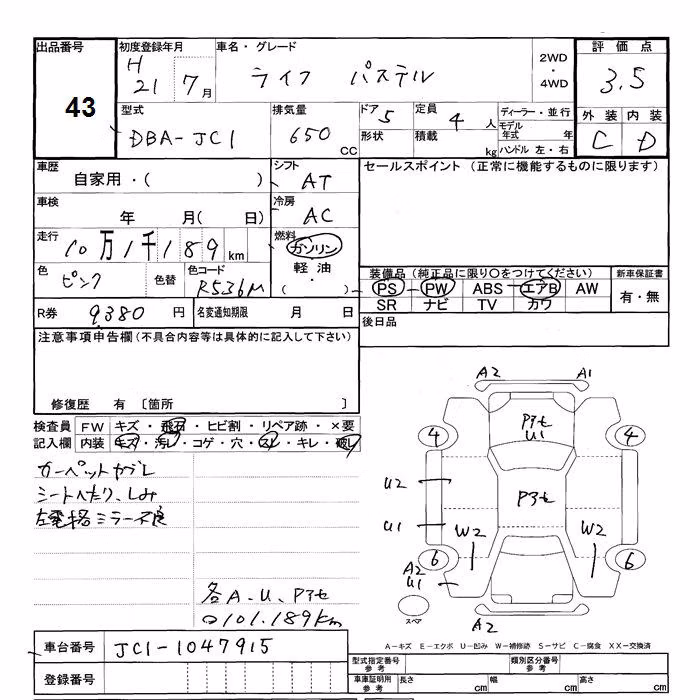 出品番号 初度登録年月 車名・グレード 評価点
43 H 21 7月 ライフ パステル 2WD ・ 4WD 3.5
型式 排気量 ドア 5 定員 4人 ディーラー・並行 外装 内装
DBA-JC1 650 CC 形状 積載 kg モデル年式 年 ハンドル 左・右 C D
車歴 シフト セールスポイント (正常に機能するものに限ります)
自家用・( ) AT
車検 冷房
年 月( 日) AC
走行 燃料
10万1千189km ガソリン
色 色替 色コード 軽油 装備品 (純正品に限り○をつけてください) 新車保証書
ピンク R536M ( ) PS PW ABS エアB AW 有・無
SR ナビ TV カワ
R券 9380 円 名変通知期限 月 日 後日品
注意事項申告欄(不具合内容等は具体的に記入して下さい)
修復歴 有 〔箇所 〕
検査員 FW キズ・飛石・ヒビ割・リペア跡・×要
記入欄 内装 キズ・汚レ・コゲ・穴・スレ・キレ・破レ
カーペットヤブレ
シートへたり、しみ
左電格ミラー不良
各A.U、Pアセ
ロ101.189km
A2 A1
Pアセ
U1
4 4
U2 Pアセ
U1 W2 W2
6 6
A2
U1
スペア A2
A-キズ E-エクボ U-凹み W-補修跡 S-サビ C-腐食 XX-交換済
車台番号 JC1-1047915
登録番号
型式指定番号 参考 類別区分番号 参考
車庫証明用 参考 長さ cm 幅 cm 高さ cm